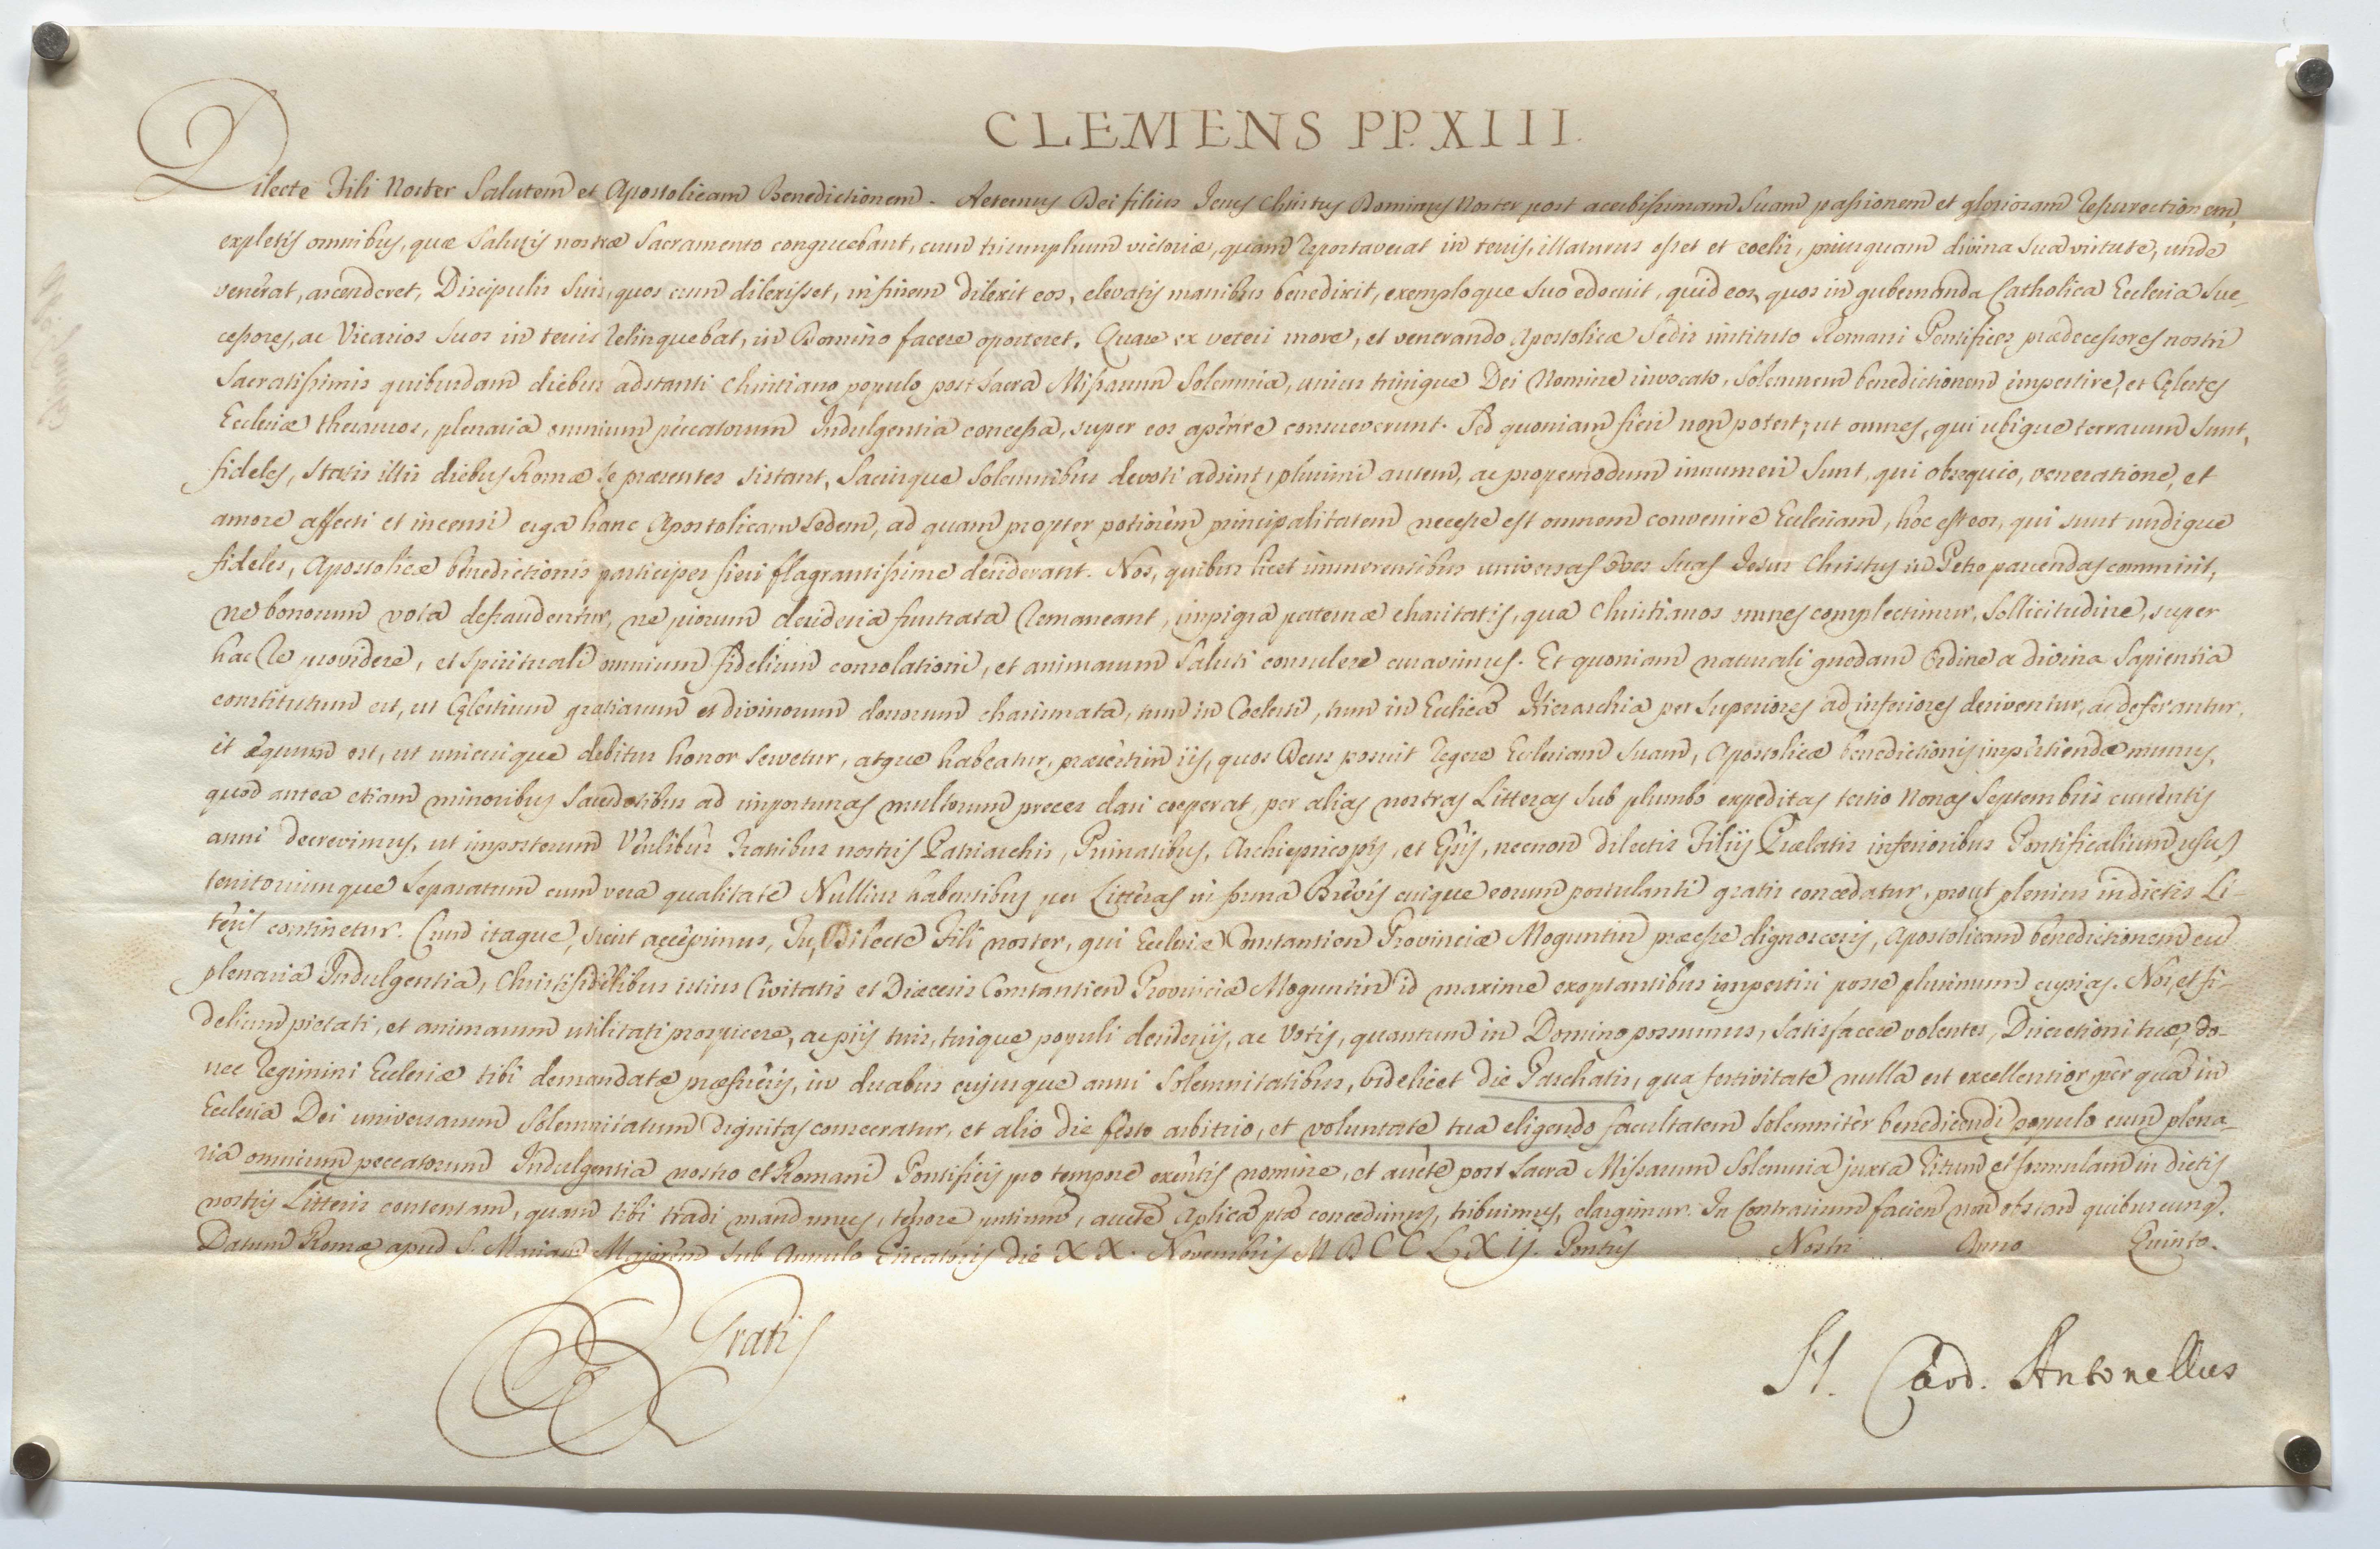 CLEMENS PP. XIII.
Dilecte Fili Noster Salutem et Apostolicam Benedictionem. Aeternus Dei filius Jesus Christus Dominus Noster post acerbissimam Suam passionem et gloriosam Resurrectionem,
expletis omnibus, quæ Salutis nostræ Sacramento congruebant, cum triumphum victoriæ, quam Reportaverat in terris, illaturus esset et coelis, priusquam divina Sua virtute, unde
venerat, ascenderet, Discipulis Suis, quos cum dilexisset, in finem dilexit eos, elevatis manibus benedixit, exemploque Suo edocuit, quid eos, quos in gubernanda Catholica Ecclesia Suc-
cessores, ac Vicarios Suos in terris Relinquebat, in Domino facere oporteret. Quare ex veteri more, et venerando Apostolicæ Sedis instituto Romani Pontifices prædecessores nostri
Sacratissimis quibusdam diebus adstanti Christiano populo post Sacra Missarum Solemnia, unius trinique Dei Nomine invocato, Solemnem benedictionem impertire, et Cęlestes
Ecclesiæ thesauros, plenaria omnium peccatorum Indulgentia concessa, super eos aperire consueverunt. Sed quoniam fieri non potest, ut omnes, qui ubique terrarum Sunt,
fideles, Statis illis diebus Romæ Se præsentes sistant, Sacrisque Solemnibus devoti adsint, plurimi autem, ac propemodum innumeri Sunt, qui obsequio, veneratione, et
amore affecti et incensi erga hanc Apostolicam Sedem, ad quam propter potiorem principalitatem necesse est omnem convenire Ecclesiam, hoc est eos, qui sunt undique
fideles, Apostolicæ benedictionis participes fieri flagrantissime desiderant. Nos, quibus licet immerentibus universas oves Suas Jesus Christus in Petro pascendas commisit,
ne bonorum vota defraudentur, ne piorum desideria frustrata Remaneant, impigra paternæ charitatis, qua Christianos omnes complectimur, Sollicitudine, super
hac Re providere, et Spirituali omnium fidelium consolationi, et animarum Saluti consulere curavimus. Et quoniam naturali quodam Ordine a divina Sapientia
constitutum est, ut Cęlestium gratiarum et divinorum donorum charismata, tum in Coelesti, tum in Ecclica Hierarchia per Superiores ad inferiores deriventur, ac deferantur,
it æquum est, ut unicuique debitus honor Servetur, atque habeatur, præsertim iis, quos Deus posuit Regere Ecclesiam Suam, Apostolicæ benedictionis impertiendæ munus,
quod antea etiam minoribus Sacerdotibus ad importunas multorum preces dari coeperat, per alias nostras Litteras Sub plumbo expeditas tertio Nonas Septembris currentis
anni decrevimus, ut imposterum Venlibus Fratribus nostris Patriarchis, Primatibus, Archiepiscopis, et Episᵖ, necnon dilectis Filijs Prælatis inferioribus Pontificalium usu,
territoriumque Separatum cum vera qualitate Nullius habentibus per Litteras in forma Brevis cuique eorum postulanti gratis concedatur, prout plenius in dictis Li-
teris continetur. Cum itaque, sicut accepimus, Tu, Dilecte Fili noster, qui Ecclesiæ Constantien Provinciæ Moguntin præesse dignosceris, Apostolicam benedictionem cum
plenaria Indulgentia, Christifidelibus istius Civitatis et Diæcesis Constantien Provinciæ Moguntin id maxime exoptantibus impertiri posse plurimum cupias. Nos, et fi-
delium pietati, et animarum utilitati prospicere, ac pijs tuis, tuique populi desiderijs, ac votis, quantum in Domino possumus, Satisfacere volentes, Discretioni tuæ, do-
nec Regimini Ecclesiæ tibi demandatæ præfueris, in duabus cujusque anni Solemnitatibus, videlicet die Paschatis, qua festivitate nulla est excellentior, per quam in
Ecclesia Dei universarum Solemnitatum dignitas consecratur, et alio die festo arbitrio, et voluntate tua eligendo facultatem Solemniter benedicendi populo cum plena-
ria omnium peccatorum Indulgentia nostro et Romani Pontificis pro tempore exintis nomine, et aucte post Sacra Missarum Solemnia juxta Ritum et formulam in dictis
nostris Litteris contentam, quam tibi tradi mandamus, tenore pntium, aucte Aplica pta concedimus, tribuimus, elargimur. In Contrarium facien non obstan quibuscunq.
Datum Romæ apud S. Mariam Majorem Sub Annulo Piscatoris die XX. Novembris MDCCLXij. Pontus Nostri Anno Quinto.
Gratis
N. Card. Antonellus